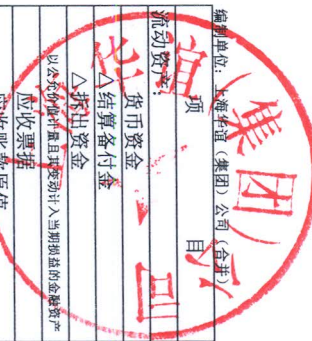 编制单位：上海华谊（集团）公司（合并）
项 目
流动资产：
货币资金
△结算备付金
△拆出资金
以公允价值计量且其变动计入当期损益的金融资产
应收票据
应收账款原值